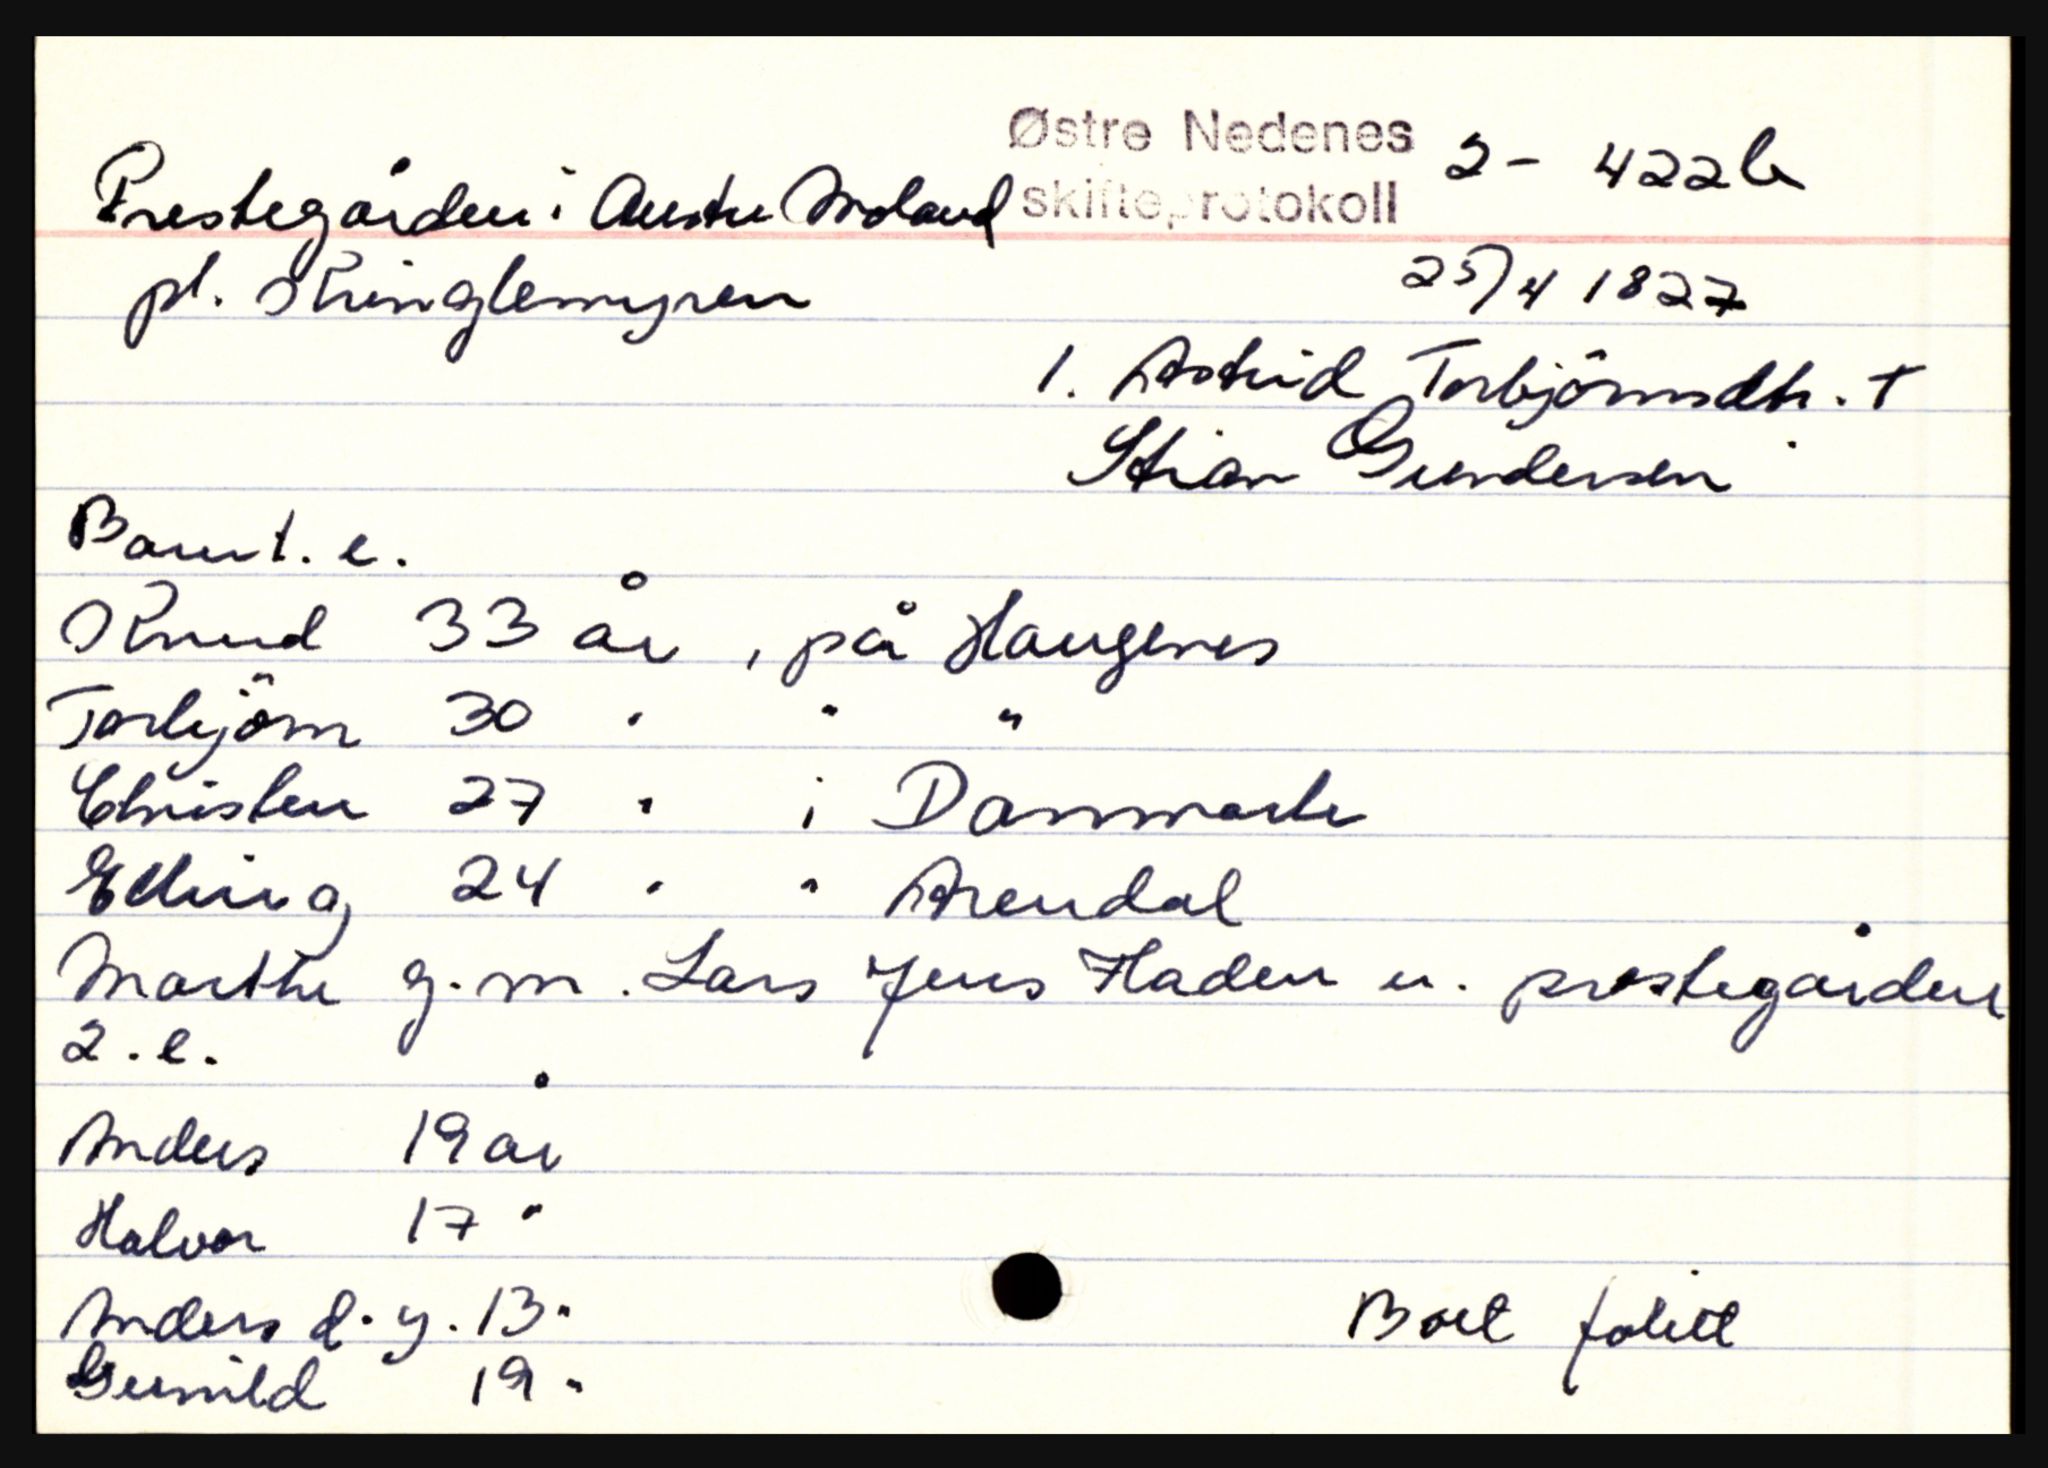 Østre Nedenes 2 - 422b
Prestegården i Austre Moland skifteprotokoll
pl. Kringlemyren 25/4 1827
1. Astrid Torbjörnsdtr. †
Stian Gundersen
Barn 1. e.
Knud 33 år, på Haugenes
Torbjörn 30 " " "
Christen 27 " i Danmark
Elling 24 " " Arendal
Marthe g. m. Lars Jens Haden u. prestegården
2. e.
Anders 19 år
Halvor 17 "
Anders d. y. 13 "
Gunild 19 "
Boet falitt